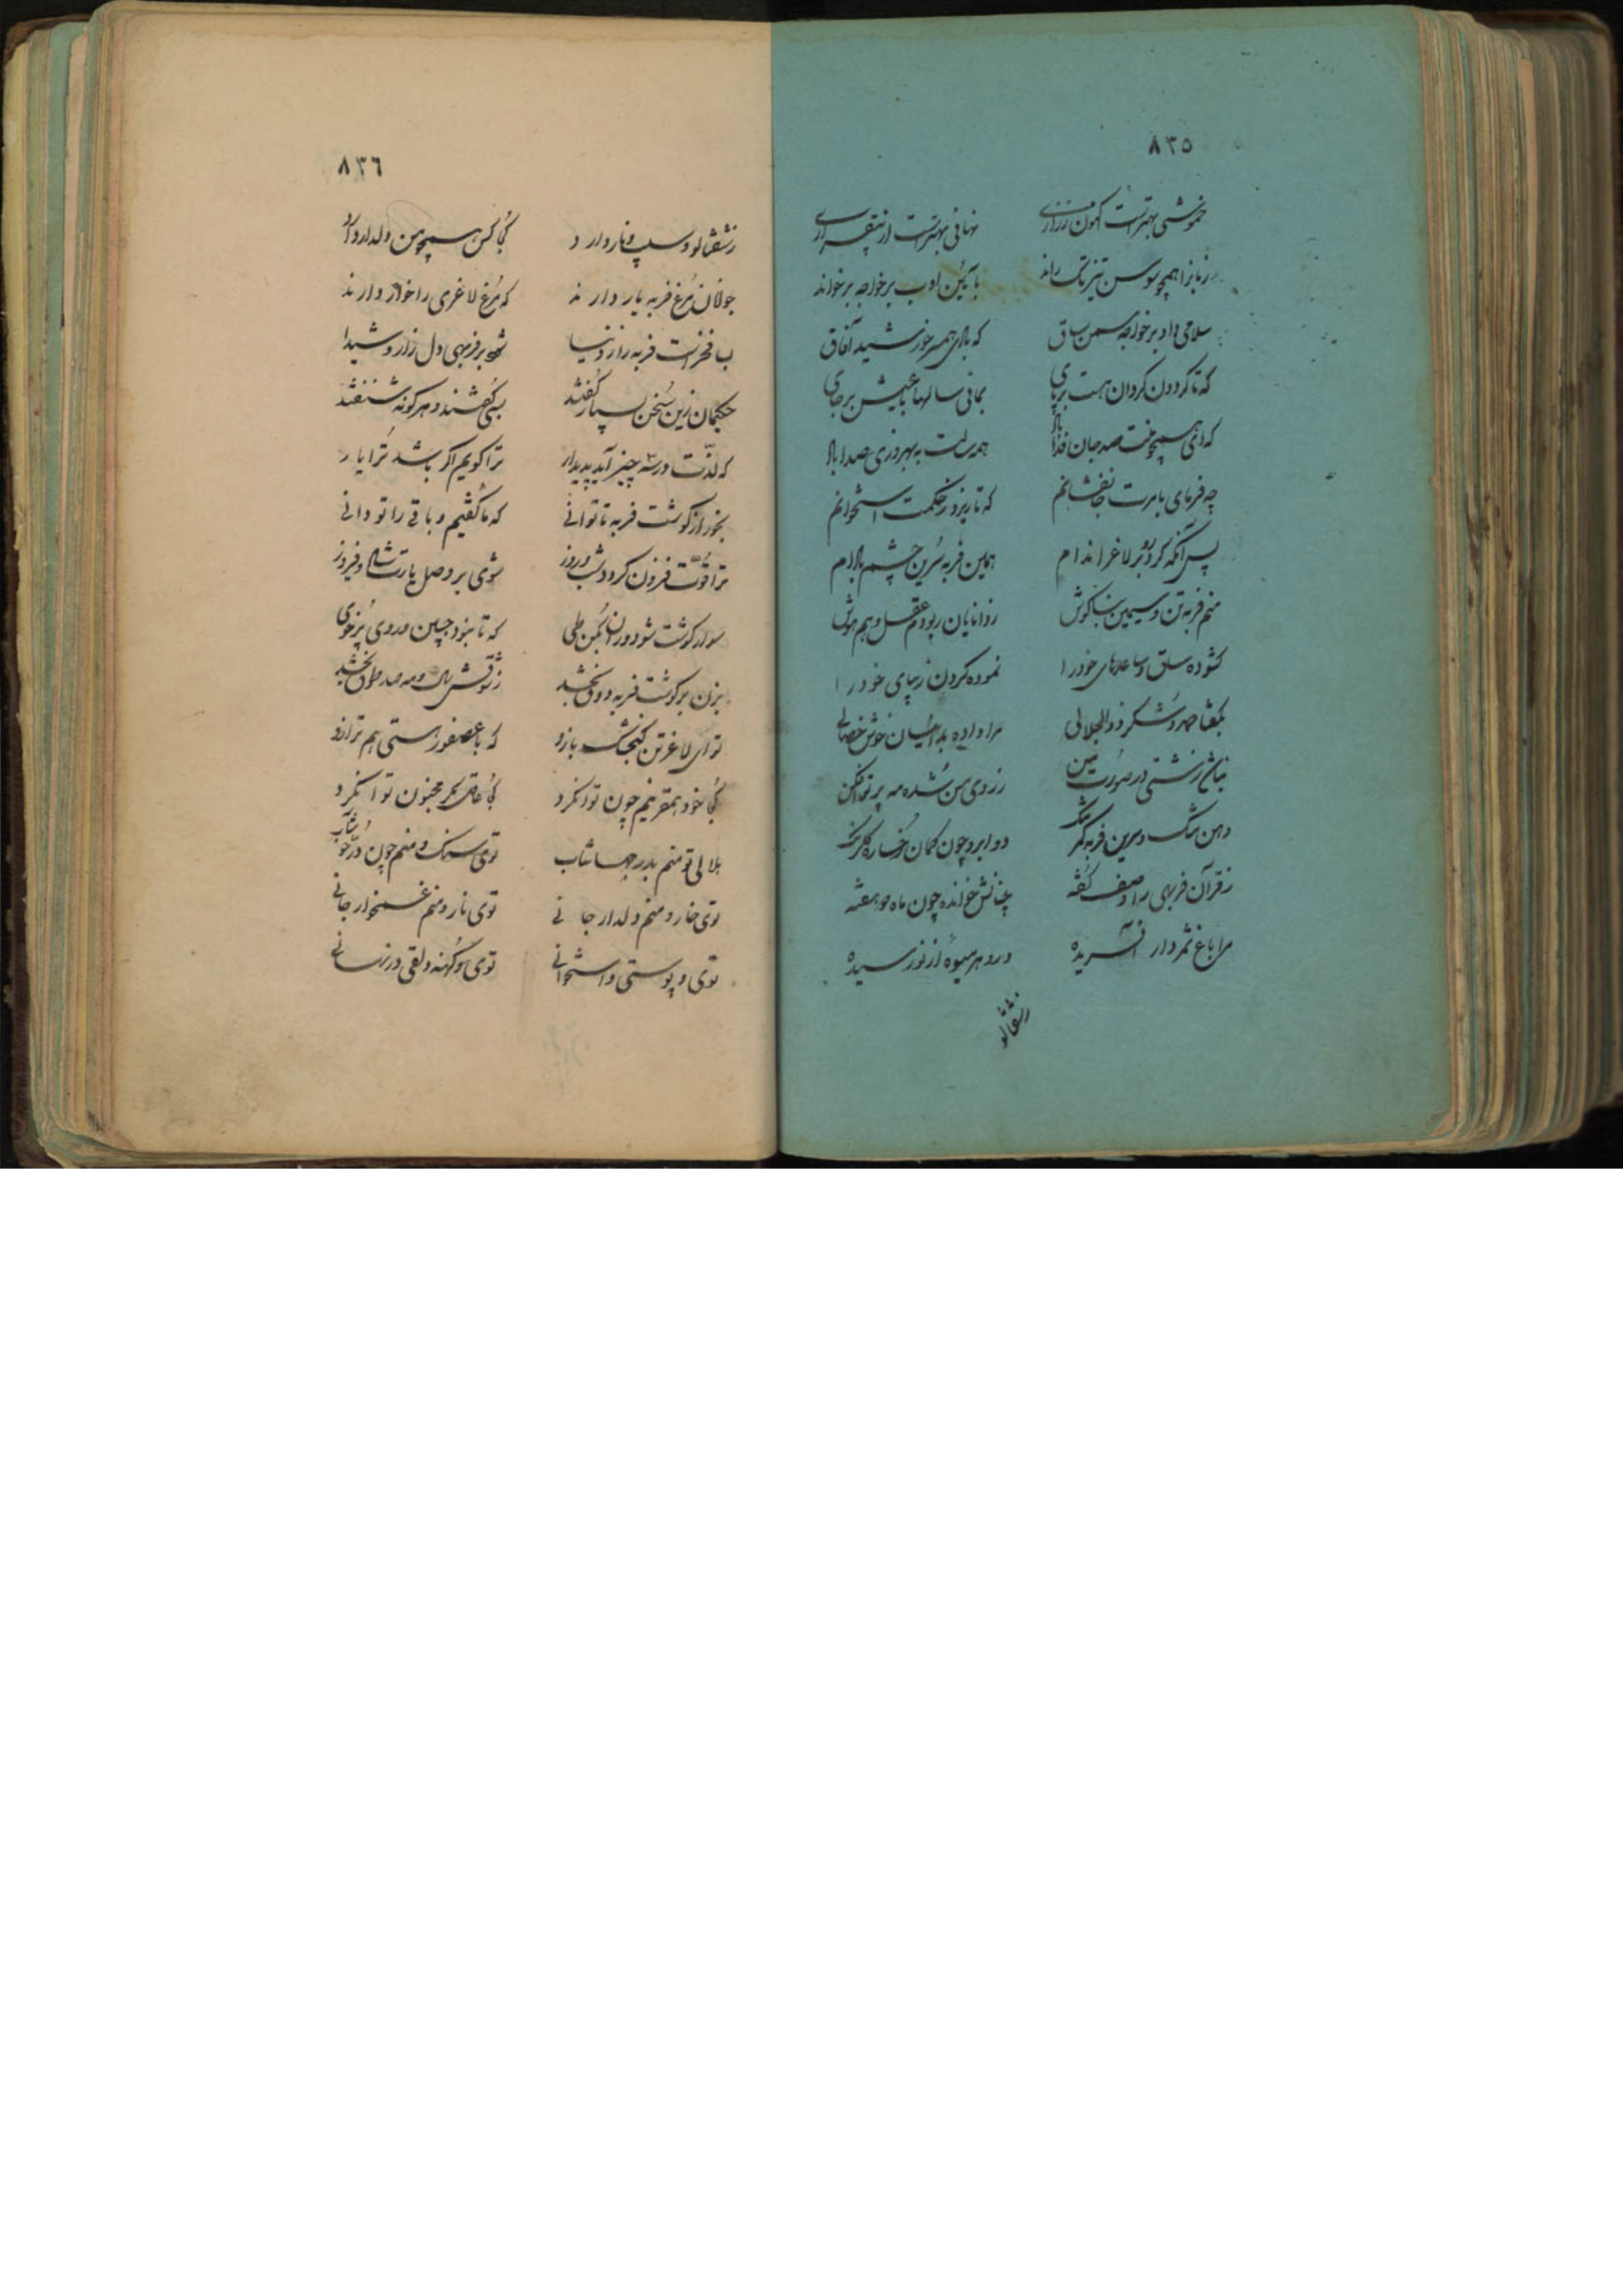 ٨٣٥
خموشی بهترست اکنون ززاری نهانی بهترست از بیقراری
زبانرا همچو سوسن تیزتک راند بآئین ادب بر خواجه برخواند
سلامی داد بر خواجه سمن ساق که بادی همسر خورشید آفاق
که تا گردون گردان هست برپای بمانی سالها با عیش برجای
که ای همچو منت صد جان فدا بادا همه سالت به بهروزی صدا بادا
چه فرمای بامرت جانفشانم که تا ریزد ز حکمت استخوانم
پس آنگه کرد رو بر لاغر اندام همان فربه سرین چشم بادام
منم فربه تن و سیمین بناگوش ز دانایان ربودم عقل و هم هوش
گشوده ساق و ساعدهای خود را نموده گردن زیبای خود را
بگفتا حمد و شکر ذوالجلالی مرا داده بدانسان خوش خصالی
ز روی من شده مه پرتو افکن
دهن تنگ و سرین فربه کمر تنگ دو ابرو چون کمان رخساره گلرنگ
ز قرآن فربهی را وصف گفته چنانش خوانده چون ماه دو هفته
مرا باغ ثمردار آفریده درو هر میوهٔ از نو رسیده
زشفتالو
٨٣٦
زشفتالو و سیب و نار دارد کجا کس همچو من دلدار دارد
جوانان مرغ فربه یار دارند که مرغ لاغری را خوار دارند
ب فخرست فربه را ز دنیا شود بر فربهی دل زار و شیدا
حکیمان زین سخن بسیار گفتند بسی گفتند و هر گونه شنفتند
که لذت در سه چیز آید پدیدار ترا گویم اگر باشد ترا یار
بخور از گوشت فربه تا توانی که ما گفتیم و باقی را تو دانی
ترا قوت فزون گردد شب و روز شوی بر وصل یارت شاد و فیروز
سوار گوشت شو دوران بکن طی که تا نبود چین در روی پرخوی
بزن بر گوشت فربه ذوق بخشد ز شوقش سال و مه صد طوق بخشد
تو ای لاغرتن گنجشک بازو که با عصفورستی هم ترازو
کجا خود همقرینم چون تو انکرد کجا عاقل بمجنون تو انکرد
هلالی تو منم بدر جهانتاب توی سنگ و منم چون در خوشاب
توی خار و منم دلدار جانی توی نار و منم غمخوار جانی
توی و پوستی و استخوانی توی کهنه و لقی در نهانی